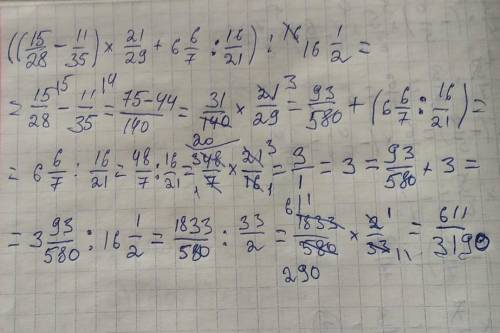 ((15/28 - 11/35) × 21/29 + 6 6/7 : 16/21) : 16 1/2 =
= 15/28 15 - 11/35 14 = 75-44/140 = 31/140 20 × 21/29 3 = 93/580 + (6 6/7 : 16/21) =
= 6 6/7 : 16/21 = 48/7 : 16/21 = 348/7 1 × 21/16 3 1 = 3/1 = 3 = 93/580 + 3 =
= 3 93/580 : 16 1/2 = 1833/580 : 33/2 = 611 1833/580 290 × 2/33 1 11 = 611/3190